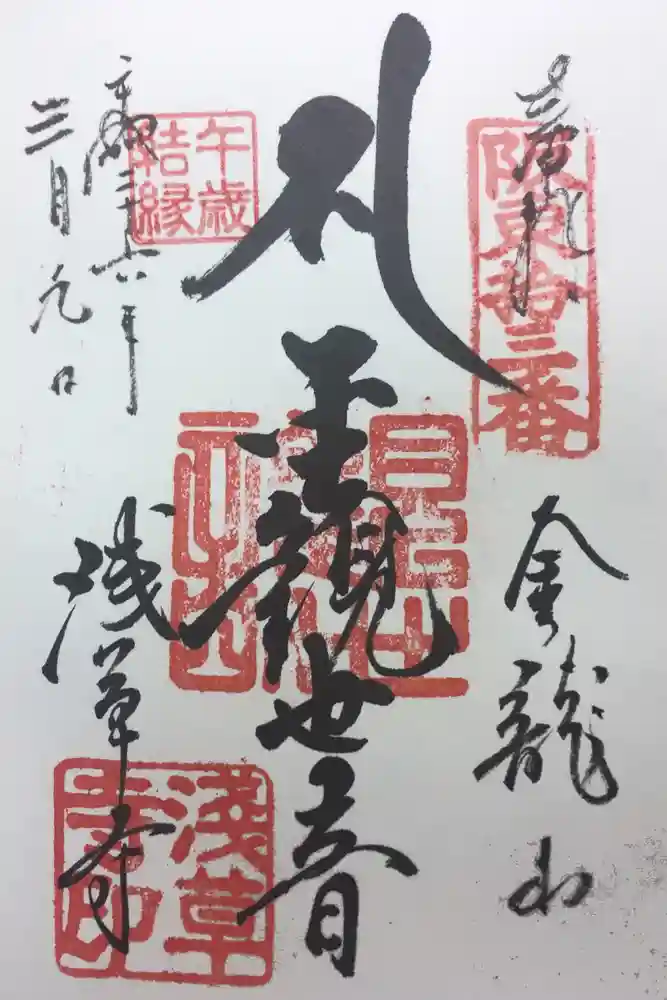 奉拝
阪東拾三番
金龍山
聖観世音
午歳
結縁
平成二十六年
三月
日
浅草寺
淺草
寺印